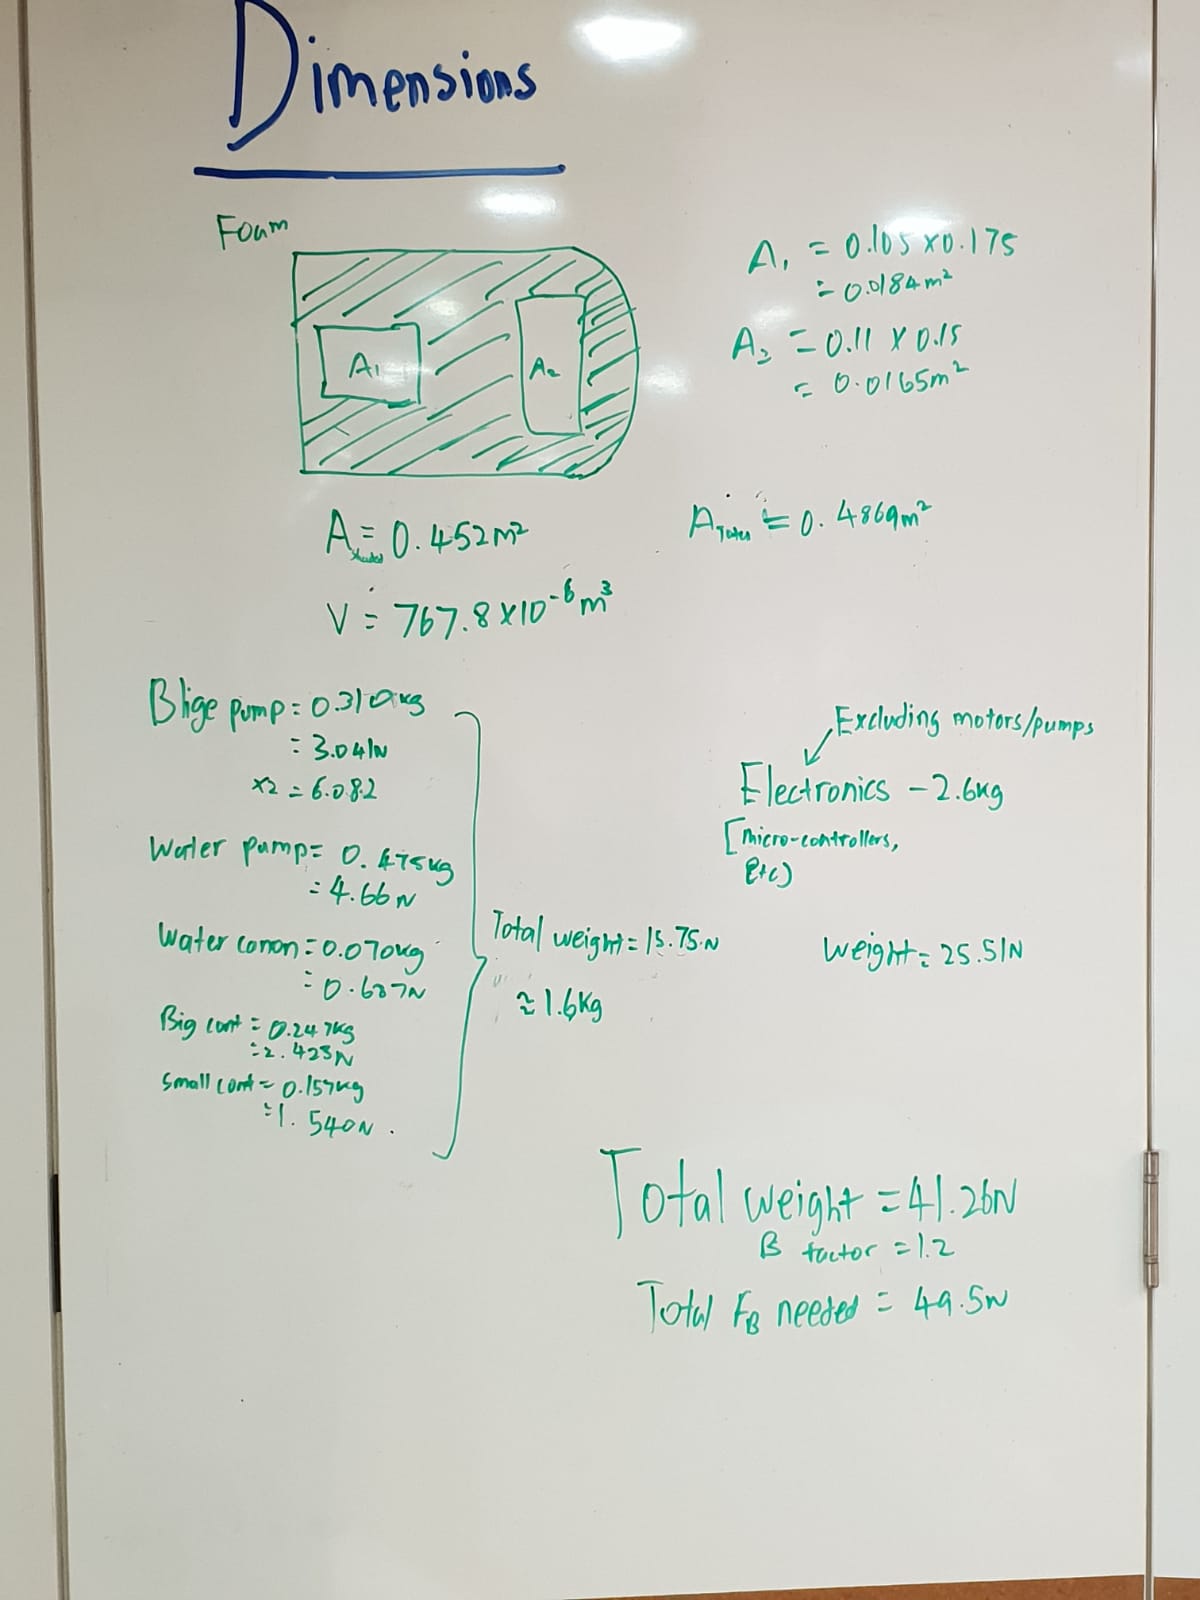 Dimensions
Foam
A1
A2
A1 = 0.105 x 0.175
= 0.0184m²
A2 = 0.11 x 0.15
= 0.0165m²
A shaded = 0.452m²
A = 0.4869m²
V = 767.8 x 10⁻⁶ m³
Blige pump = 0.310kg
= 3.041N
x2 = 6.082
Water pump = 0.475kg
= 4.66N
Water conon = 0.070kg
= 0.687N
Big cont = 0.247kg
= 2.423N
Small cont = 0.157kg
= 1.540N.
Total weight = 15.75N
≈ 1.6kg
Excluding motors/pumps
Electronics - 2.6kg
[micro-controllers,
Etc)
Weight = 25.51N
Total weight = 41.26N
B factor = 1.2
Total FB needed = 49.5N